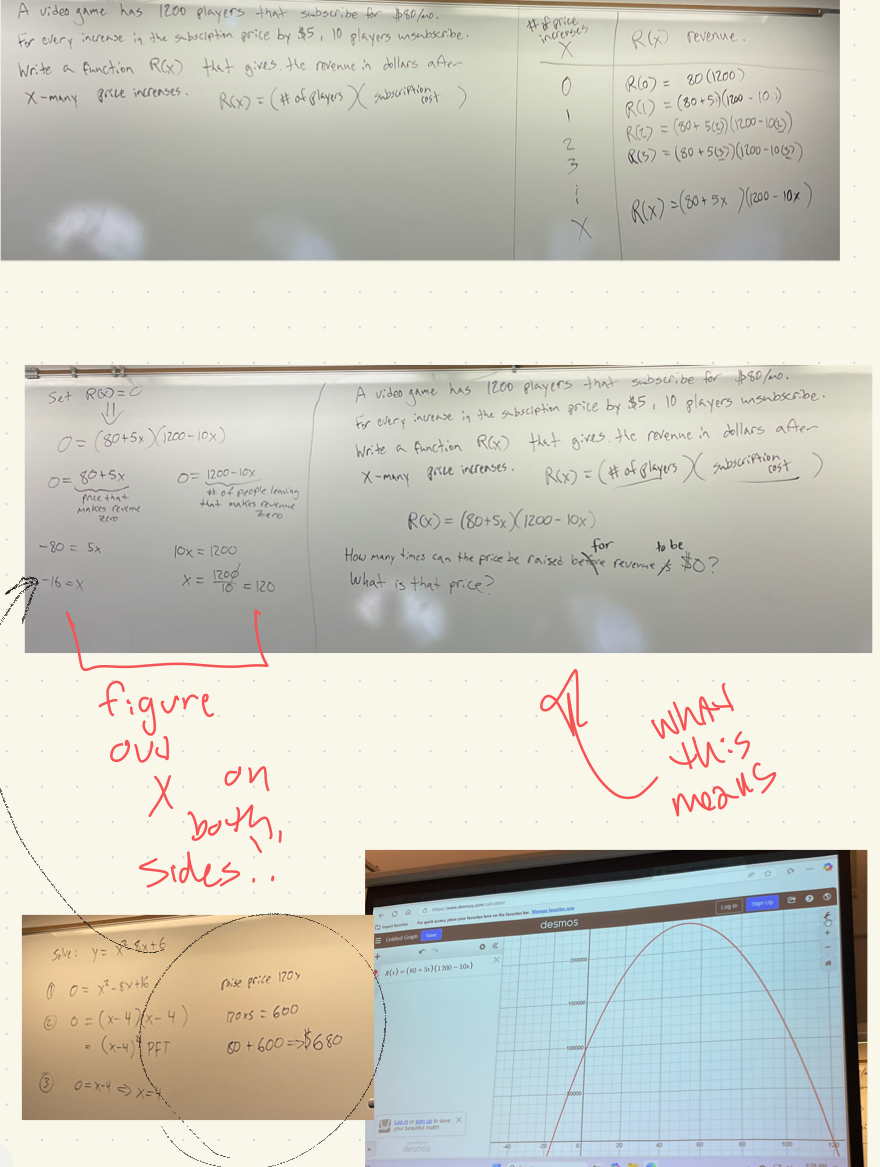 A video game has 1200 players that subscribe for $80/mo.
For every increase in the subsciption price by $5, 10 players unsubscribe.
Write a function R(x) that gives the revenue in dollars after
X-many price increases. R(x) = (# of players)(subscription cost)
# of price increases
X
R(x) revenue.
0 R(0) = 80(1200)
1 R(1) = (80+5·1)(1200 - 10·1)
2 R(2) = (80+5(2))(1200-10(2))
3 R(3) = (80+5(3))(1200-10(3))
⋮
X R(x) = (80+5x)(1200-10x)
Set R(x) = 0
⇓
0 = (80+5x)(1200-10x)
0 = 80+5x
price that makes revenue zero
-80 = 5x
-16 = x
0 = 1200-10x
# of people leaving that makes revenue zero
10x = 1200
x = 1200/10 = 120
A video game has 1200 players that subscribe for $80/mo.
For every increase in the subsciption price by $5, 10 players unsubscribe.
Write a function R(x) that gives the revenue in dollars after
X-many price increases. R(x) = (# of players)(subscription cost)
R(x) = (80+5x)(1200-10x)
How many times can the price be raised for revenue to be $0?
What is that price?
figure
out
X on
both
sides!!
what
this
means
Solve: y = x²-8x+6
① 0 = x²-8x+16
② 0 = (x-4)(x-4)
= (x-4)² PFT
③ 0 = x-4 ⇒ x=4
raise price 120x
120x5 = 600
80 + 600 ⇒ $680
https://www.desmos.com/calculator
For quick access, place your favorites here on the favorites bar. Manage favorites now
Untitled Graph
Save
desmos
Log In
Sign Up
R(x) = (80 + 5x)(1200 - 10x)
200000
150000
100000
50000
-40
-20
0
20
40
60
80
100
120
Log in or sign up to save
your beautiful math!
powered by
desmos